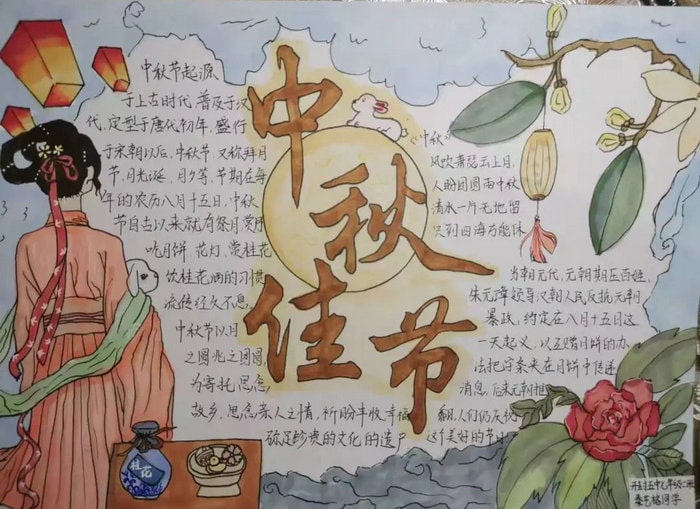 中秋佳节
中秋节起源
于上古时代,普及于汉
代,定型于唐代初年,盛行
于宋朝以后,中秋节,又称拜月
节,月光诞,月夕等,节期在每
年的农历八月十五日,中秋
节自古以来就有祭月赏月
吃月饼、花灯、赏桂花
饮桂花酒的习惯
流传经久不息,
中秋节以月
之圆兆之团圆,
为寄托思念
故乡,思念亲人之情,祈盼丰收幸福
弥足珍贵的文化的遗产
《中秋》
风吹萧瑟云上月,
人盼团圆雨中秋
清冰一片无地留
只到四海方能休
当朝元代,元朝期压百姓,
朱元璋领导汉朝人民反抗元朝
暴政,约定在八月十五日这
一天起义,以互赠月饼的办
法把字条夹在月饼中传递
消息,后来元朝推
翻,人们仍庆祝
这个美好的节日
桂花
开封五中七年级二班
同学